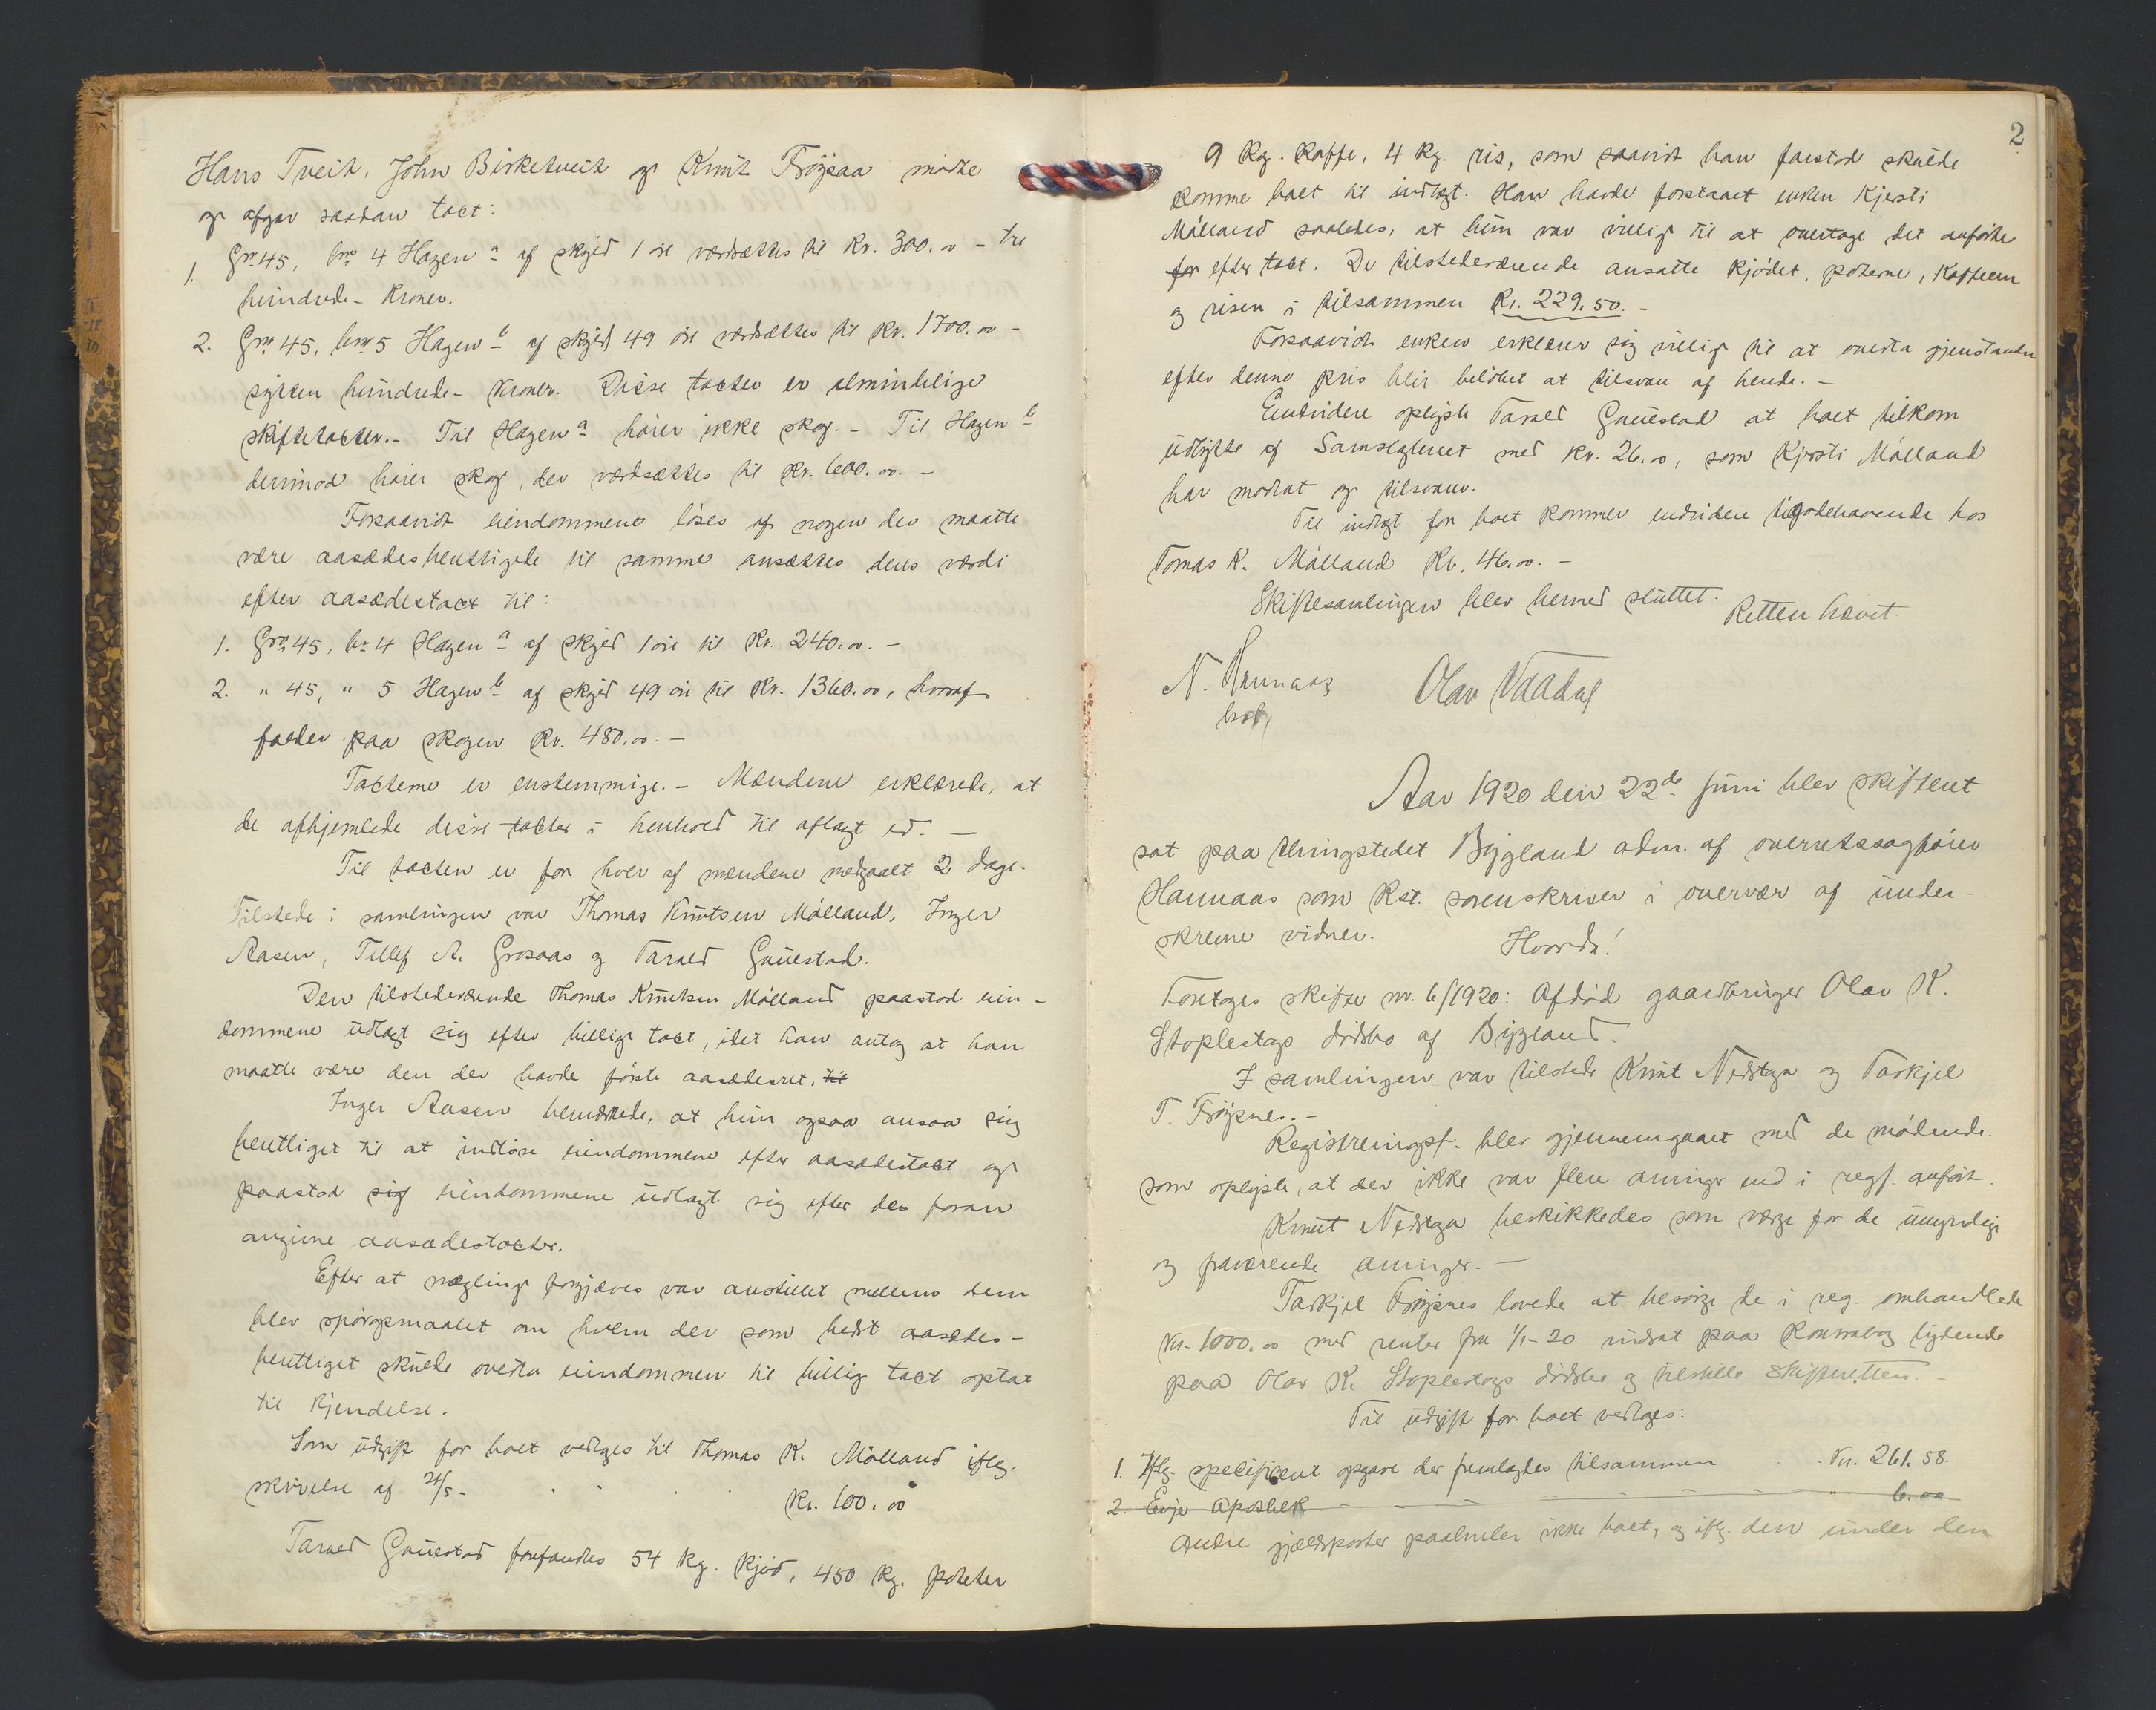 Hans Tveit, John Birketveit og Knut Frøysaa mødte
og afgav saadan taxt:
1. Gnr. 45, bnr. 4 Hagen a af skyld 1 øre værdsættes til Kr. 300.00 - tre
hundrede - Kroner.
2. Gnr. 45, bnr. 5 Hagen b af skyld 49 øre værdsættes til Kr. 1700.00 -
sytten hundrede - Kroner. Disse taxter er almindelige
skiftetaxter. - Til Hagen a hører ikke skog. - Til Hagen b
derimod hører skog, der værdsættes til Kr. 600.00. -
Forsaavidt eiendommene løses af nogen der maatte
være aasædesberettigede til samme ansættes dens værdi
efter aasædestaxt til:
1. Gnr. 45, bnr. 4 Hagen a af skyld 1 øre til Kr. 240.00. -
2. " 45, " 5 Hagen b af skyld 49 øre til Kr. 1360.00, hvoraf
falder paa skogen Kr. 480.00. -
Taxterne er enstemmige. - Mændene erklærede, at
de afhjemlede disse taxter i henhold til aflagt ed. -
Til taxten er for hver af mændene medgaaet 2 dage.
Tilstede i samlingen var Thomas Knutsen Mølland, Inger
Aasen, Tellef A. Grosaas og Tarald Gauestad.
Den tilstedeværende Thomas Knutsen Mølland paastod eien-
dommene udlagt sig efter billig taxt, idet han antog at han
maatte være den der havde første aasædesret. til
Inger Aasen bemærkede, at hun ogsaa ansaa sig
berettiget til at indløse eiendommene efter aasædestaxt og
paastod sig eiendommene udlagt sig efter den foran
angivne aasædestaxter.
Efter at mægling forgjæves var anstillet mellem dem
blev spørgsmaalet om hvem der som bedst aasædes-
berettiget skulde overta eiendommen til billig taxt optat
til Kjendelse.
Som udgift for boet vedtages til Thomas K. Mølland iflg.
skrivelse af 21/5 - . . . . Kr. 100.00
Tarald Gauestad forefandtes 54 kg. kjød, 450 kg. poteter
2
9 Kg. Kaffe, 4 Kg. ris, som saavidt han forstod skulde
komme boet til indtægt. Han havde forstaaet enken Kjersti
Mølland saaledes, at hun var villig til at overtage det anførte
for efter taxt. De tilstedeværende ansatte kjødet, poterne, Kaffeen
og risen i tilsammen Kr. 229.50. -
Forsaavidt enken erklærer sig villig til at overta gjenstandene
efter denne pris blir beløbet at tilsvare af hende. -
Endvidere oplyste Tarald Gauestad at boet tilkom
udbytte af Samslagteriet med Kr. 26.00, som Kjersti Mølland
har modtat og tilsvarer.
Til indtægt for boet kommer endvidere tilgodehavende hos
Tomas K. Mølland Kr. 46.00. -
Skiftesamlingen blev hermed sluttet.
Retten hævet.
N. Hannaas
kst.
Olav Vaadal
Aar 1920 den 22de Juni blev skifteret
sat paa thingstedet Bygland adm. af overretssagfører
Hannaas som Kst. sorenskriver i overvær af under-
skrevne vidner.
Hvorda!
Foretoges skifte nr. 6/1920: Afdød gaardbruger Olav K.
Stoplestogs dødsbo af Bygland.
I samlingen var tilstede Knut Nedstga og Tarkjel
T. Frøysnes. -
Registreringsf. blev gjennemgaaet med de mødende
som oplyste, at der ikke var flere arvinger end i regf. anført.
Knut Nedstga beskikkedes som værge for de umyndige
og fraværende arvinger. -
Tarkjel Frøysnes lovede at besørge de i reg. omhandlede
Kr. 1000.00 med renter fra 1/1-20 indsat paa Kontrabog lydende
paa Olav K. Stoplestogs dødsbo og tilstille Skifteretten. -
Til udgift for boet vedtages:
1. Iflg. specificeret opgave der fremlagtes tilsammen . . Kr. 261.58.
2. Evje apothek - - - - - - " 6.00
Andre gjældsposter paahviler ikke boet, og iflg. den under den